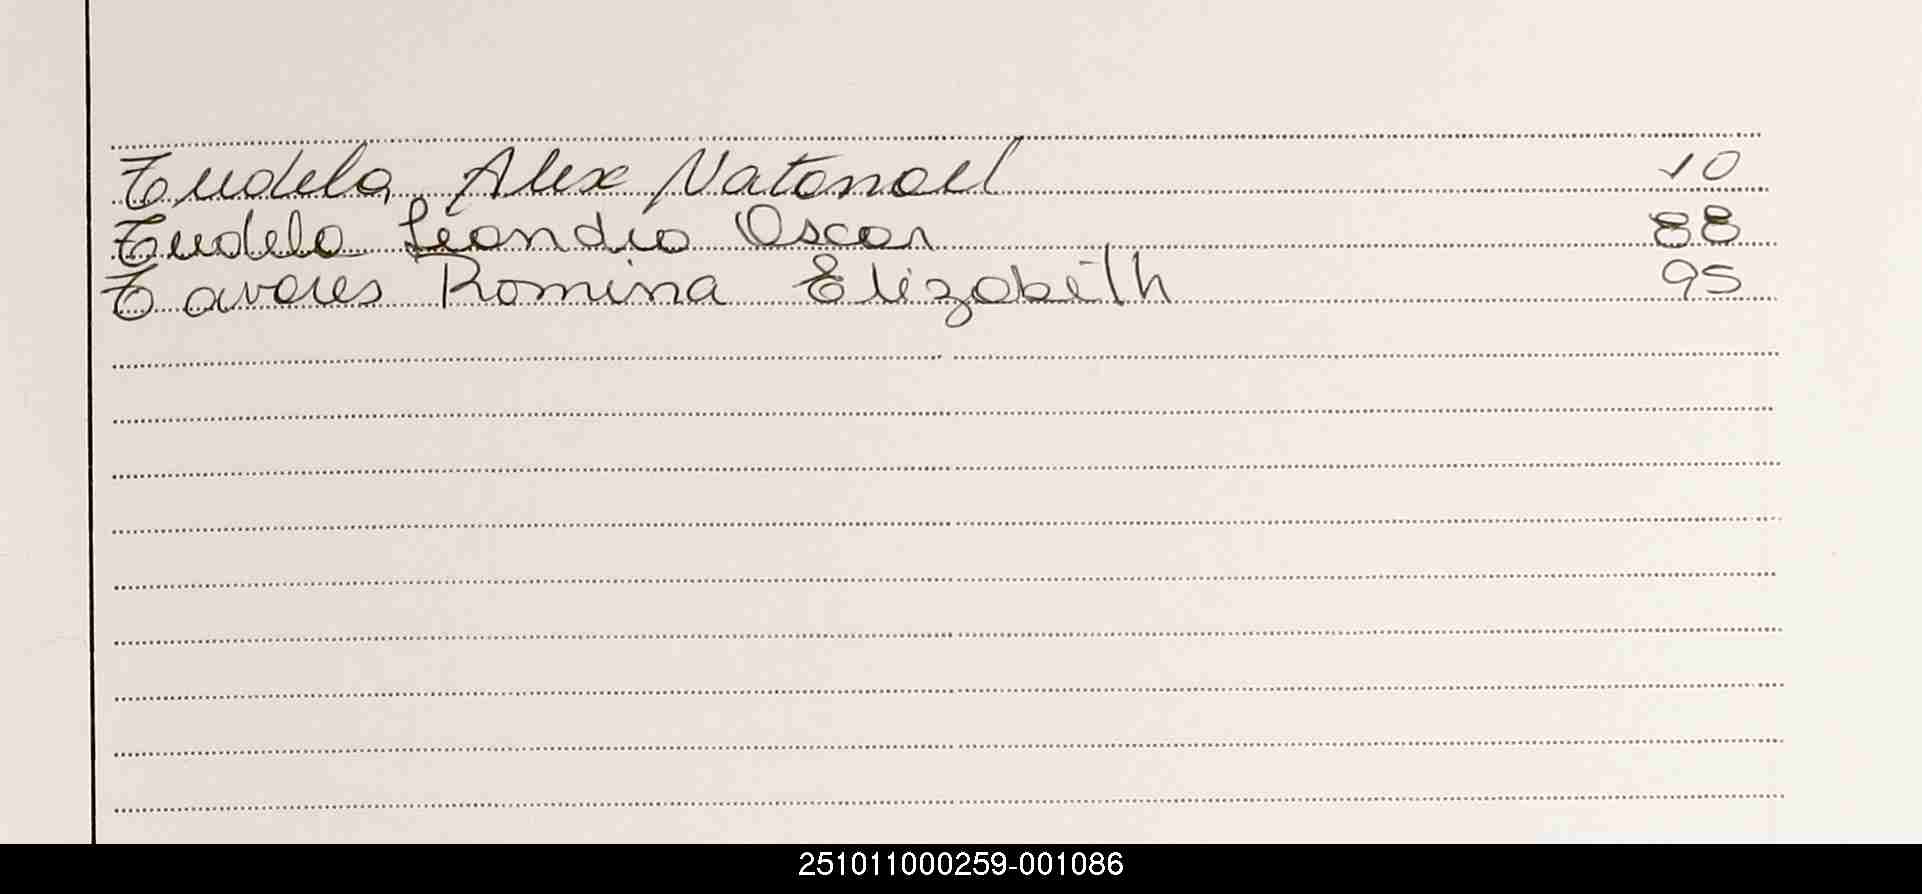 Tudela, Alex Natanael 10
Tudela Leandro Oscar 88
Tavares Romina Elizabeth 95
251011000259-001086